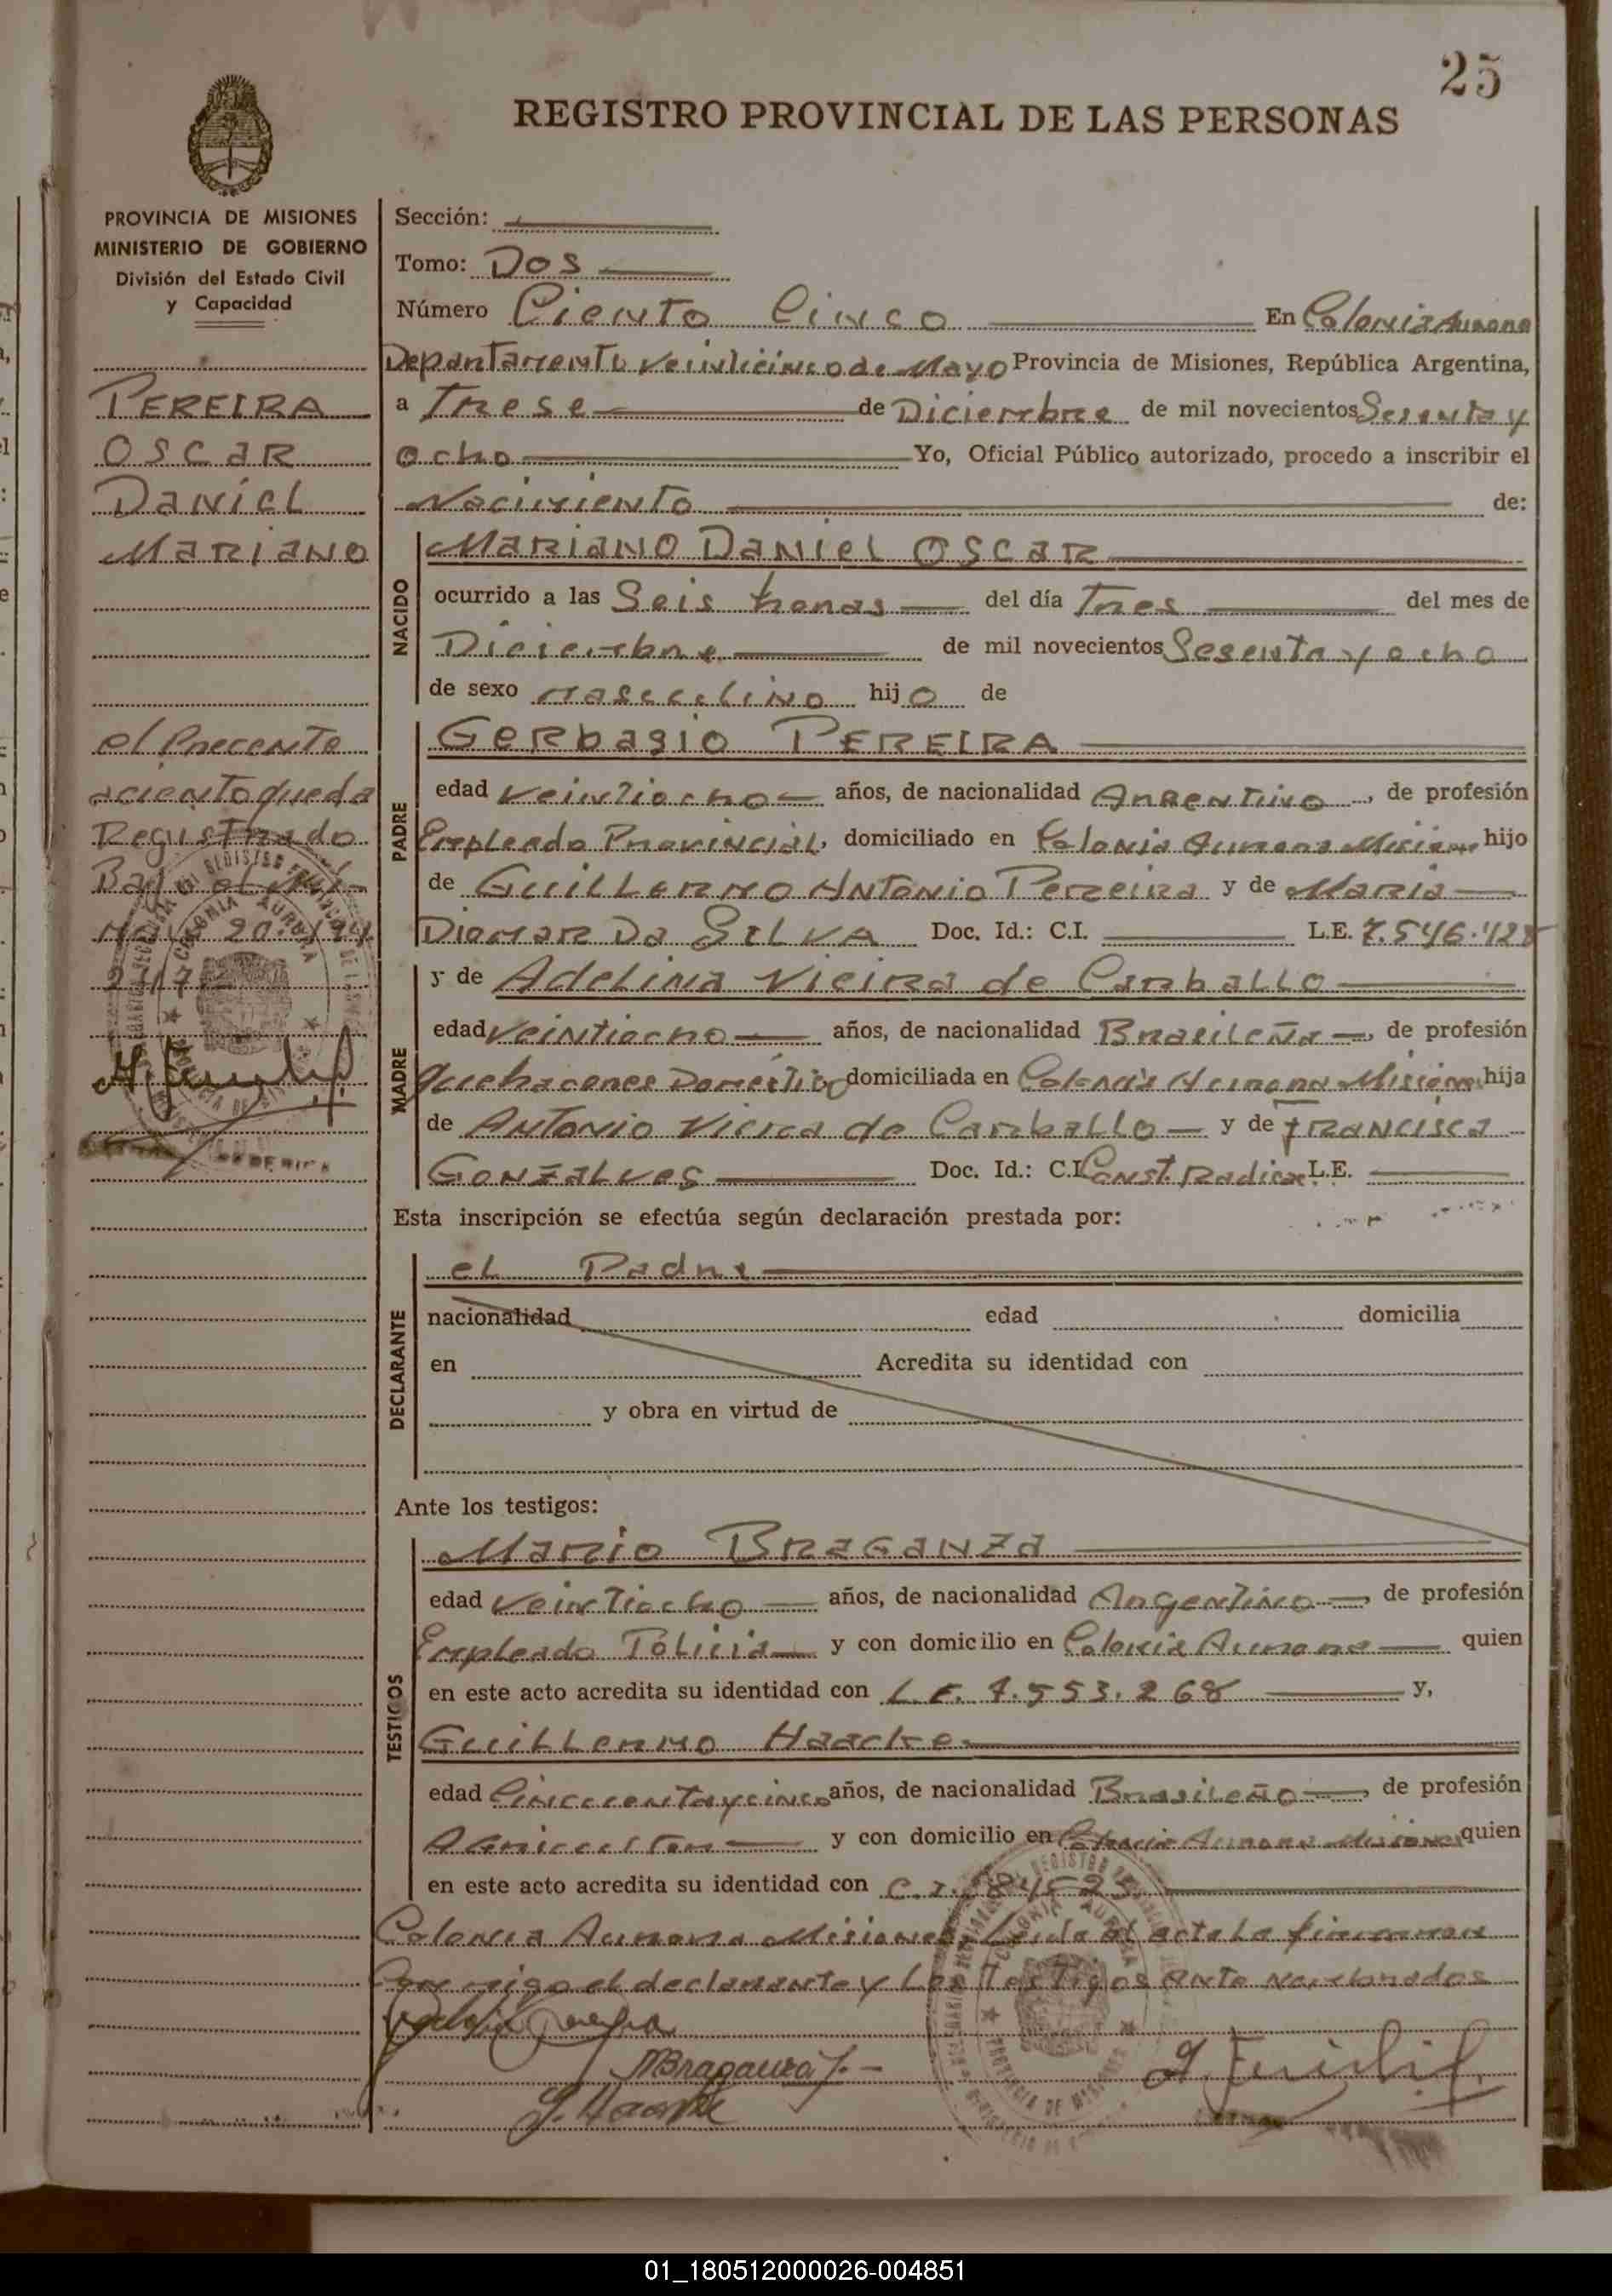 25
REGISTRO PROVINCIAL DE LAS PERSONAS
PROVINCIA DE MISIONES
MINISTERIO DE GOBIERNO
División del Estado Civil
y Capacidad
PEREIRA
OSCAR
DANIEL
MARIANO
el Precente
aciento queda
Registrado
Bajo el
20.
Sección:
Tomo: Dos
Número Ciento Cinco En Colonia Aurora
Departamento Veinticinco de Mayo Provincia de Misiones, República Argentina,
a Trese de Diciembre de mil novecientos Sesenta y
ocho Yo, Oficial Público autorizado, procedo a inscribir el
Nacimiento de:
NACIDO
MARIANO DANIEL OSCAR
ocurrido a las Seis horas del día Tres del mes de
Diciembre de mil novecientos Sesenta y ocho
de sexo masculino hijo de
PADRE
Gerbasio PEREIRA
edad Veintiocho años, de nacionalidad Argentino, de profesión
Empleado Provincial, domiciliado en Colonia Aurora Misiones hijo
de Guillermo Antonio Pereira y de Maria
Diomar Da SILVA Doc. Id.: C.I. L.E. 7.546.428
MADRE
y de Adelina Vieira de Carballo
edad Veintiocho años, de nacionalidad Brasileña, de profesión
quehaceres Domestico domiciliada en Colonia Aurora Misiones hija
de Antonio Vieira de Carballo y de Francisca
Gonzalves Doc. Id.: C.I. Const. Radica. L.E.
Esta inscripción se efectúa según declaración prestada por:
DECLARANTE
el Padre
nacionalidad edad domicilia
en Acredita su identidad con
y obra en virtud de
Ante los testigos:
TESTIGOS
Mario BRAGANZA
edad Veintiocho años, de nacionalidad Argentino, de profesión
Empleado Policia y con domicilio en Colonia Aurora quien
en este acto acredita su identidad con L.E. 7.553.268 y,
Guillermo Haacke
edad Cincuenta y cinco años, de nacionalidad Brasileño, de profesión
Agricultor y con domicilio en Colonia Aurora Misiones quien
en este acto acredita su identidad con C.I.
Colonia Aurora Misiones, Leida el acta la firman
Conmigo el declarante y Los Testigos ante nombrados
MBraganza
G. Haacke
COLONIA AURORA
PROVINCIA DE MISIONES
01_180512000026-004851